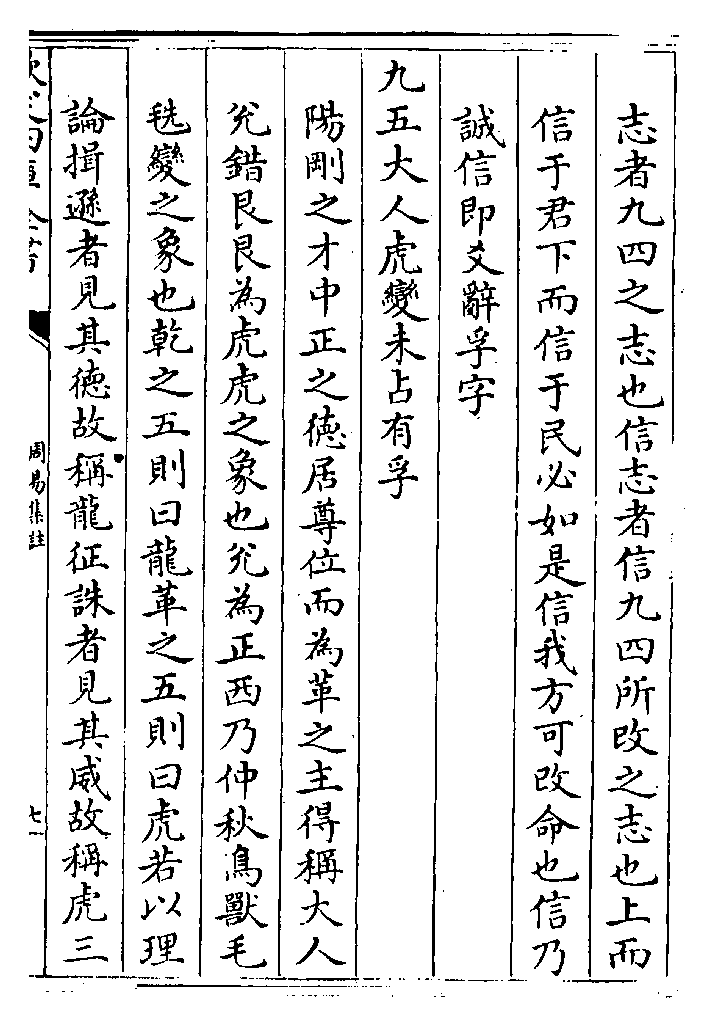 志者九四之志也信志者信九四所改之志也上而
信于君下而信于民必如是信我方可改命也信乃
誠信即爻辭孚字
九五大人虎變未占有孚
陽剛之才中正之德居尊位而為革之主得稱大人
兊錯艮艮為虎虎之象也兊為正西乃仲秋鳥獸毛
毨變之象也乾之五則曰龍革之五則曰虎若以理
論揖遜者見其德故稱龍征誅者見其威故稱虎三
周易集註